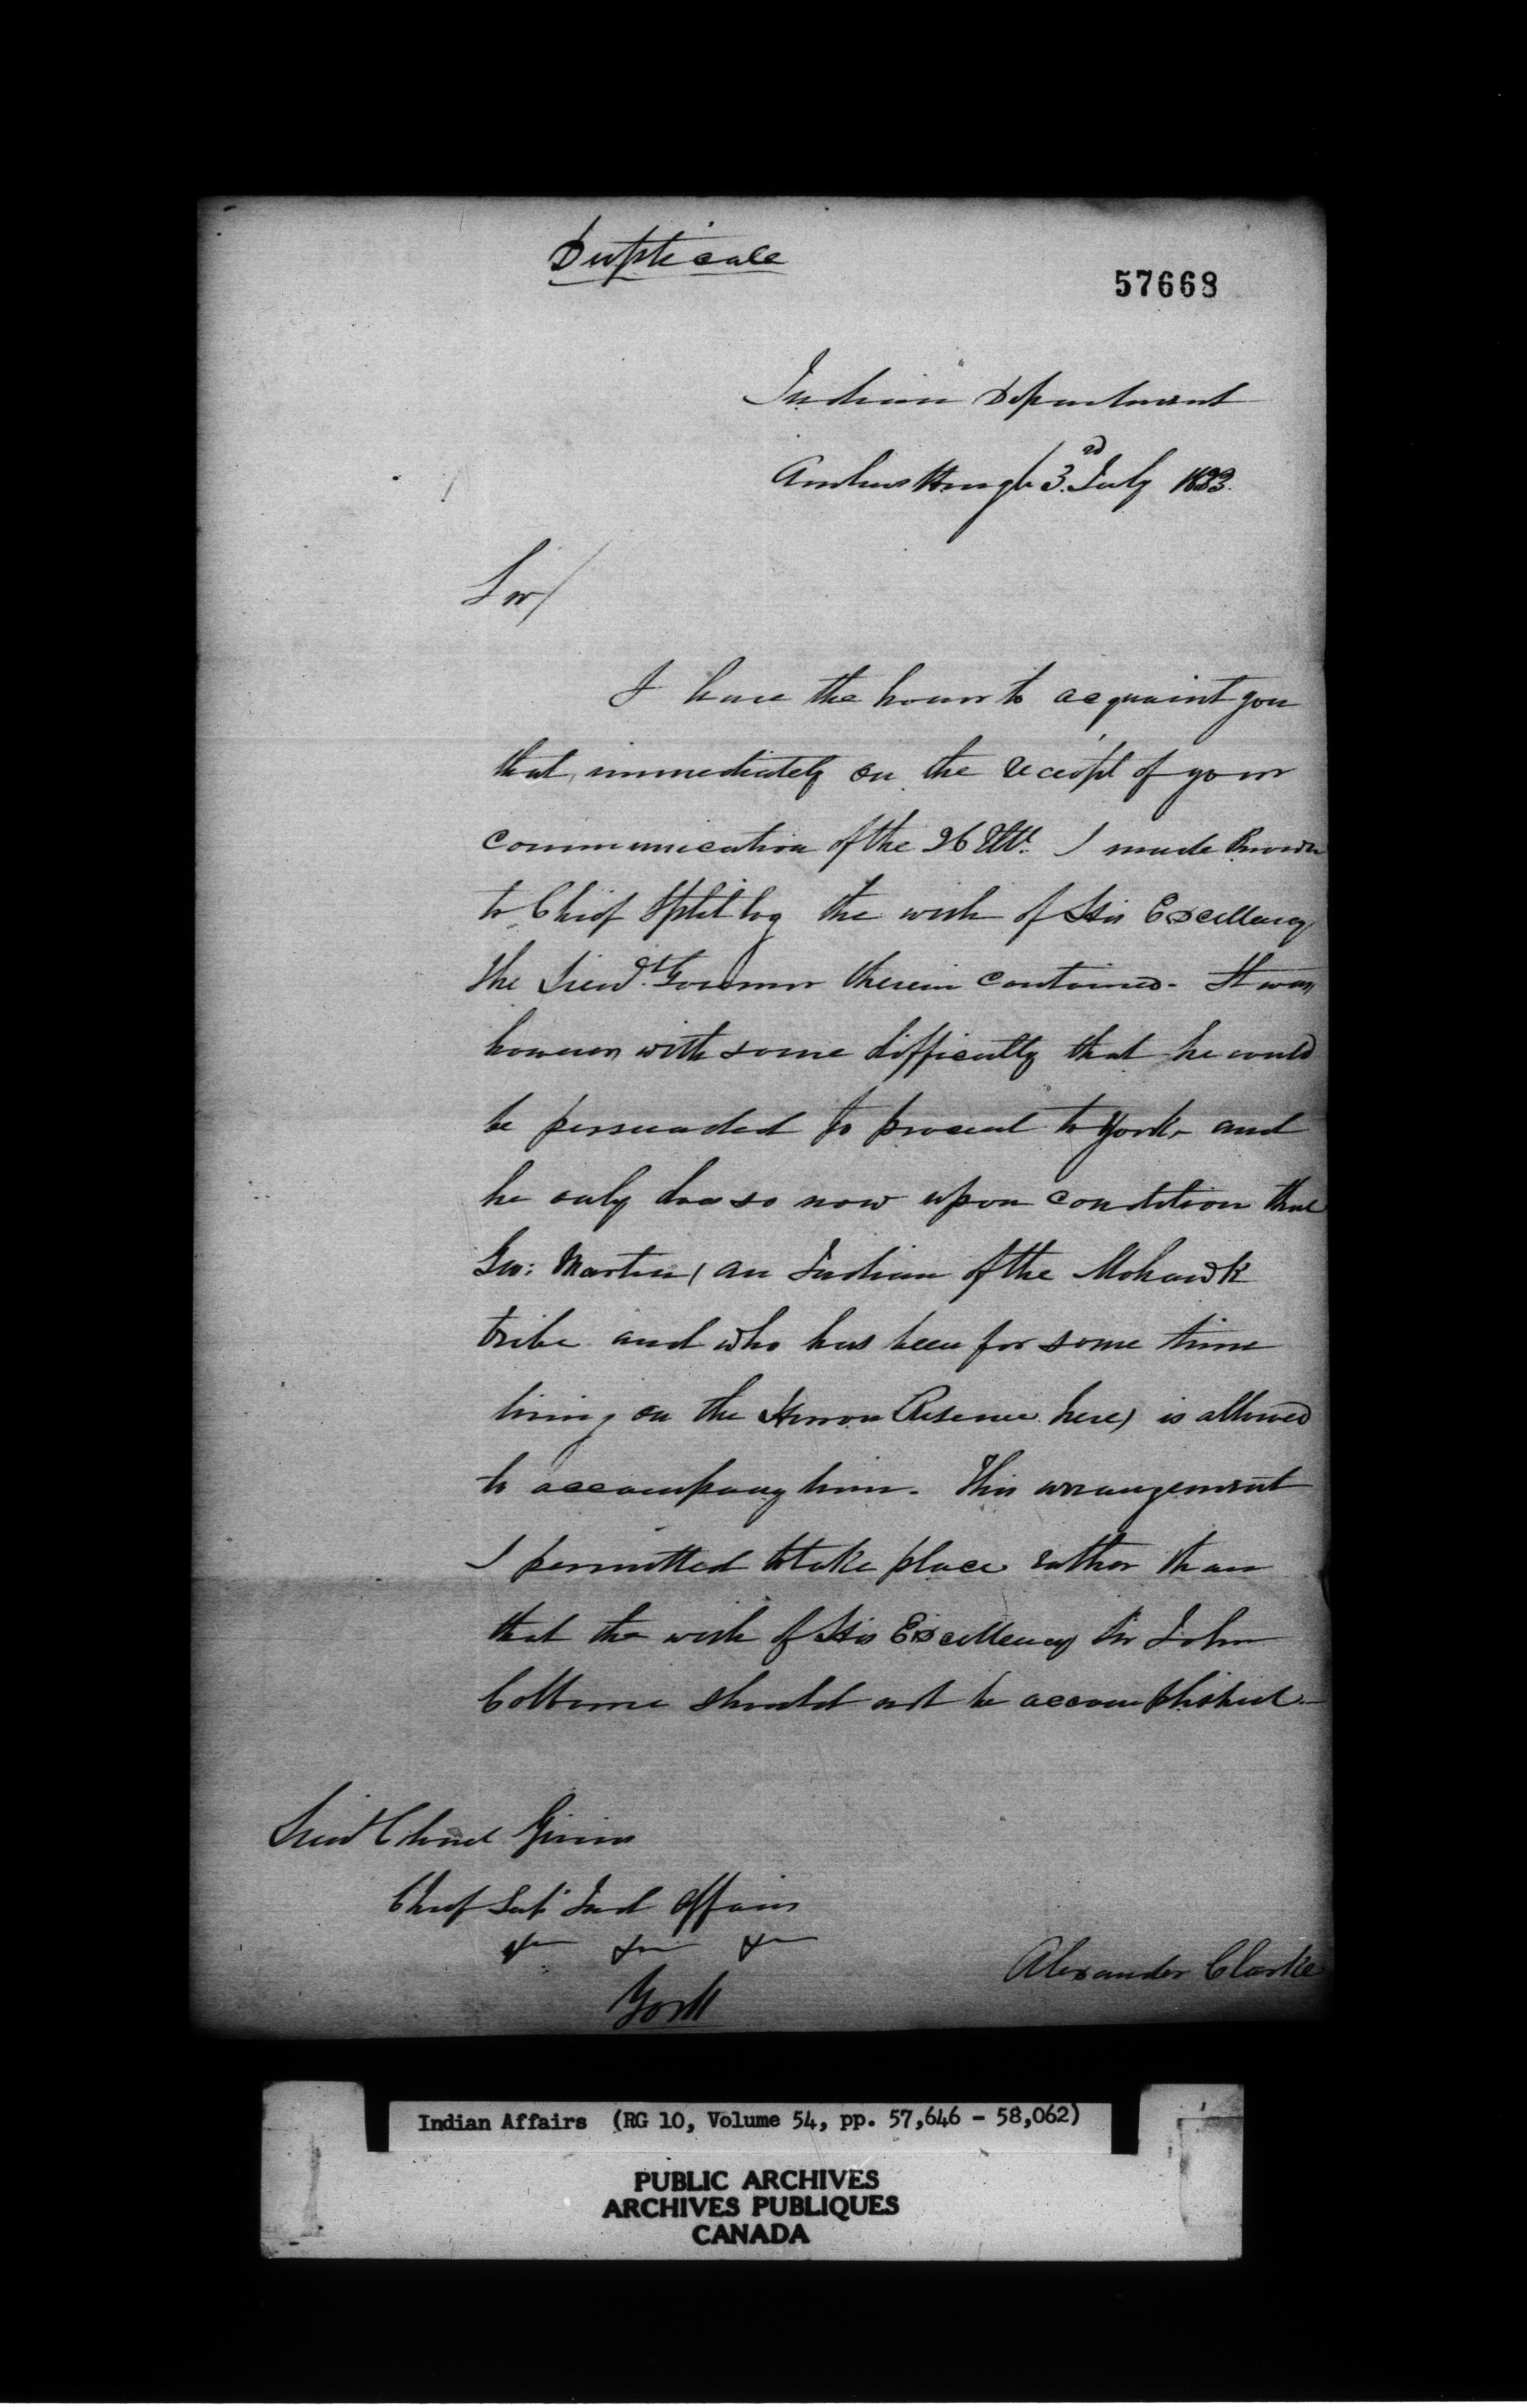 Duplicate
57668
Indian Department
Amherstburgh 3rd July 1833.
Sir/
I have the honor to acquaint you
that, immediately on the receipt of your
communication of the 26 Ulto. I made known
to Chief Splitlog the wish of His Excellency
the Lieut. Governor therein contained. It was
however with some difficulty that he could
be persuaded to proceed to York and
he only does so now upon condition that
Geo: Martin (an Indian of the Mohawk
tribe and who has been for some time
living on the Huron Reserve here) is allowed
to accompany him. This arrangement
I permitted to take place rather than
that the wish of His Excellency Sir John
Colborne should not be accomplished.
Lieut Colonel Givins
Chief Supt Ind Affairs
&c &c &c
York
Alexander Clarke
Indian Affairs (RG 10, Volume 54, pp. 57,646 - 58,062)
PUBLIC ARCHIVES
ARCHIVES PUBLIQUES
CANADA